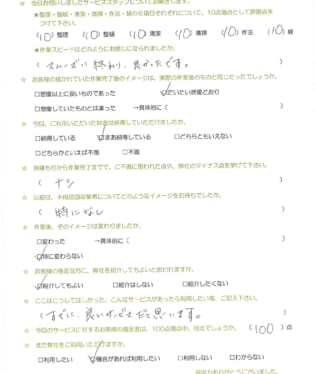 ☆ 当日お伺いしましたサービススタッフについてお聞きします。
★整理・整頓・清潔・清掃・作法・躾の6項目それぞれについて、10点満点として評価点を
つけて下さい。
(10)整理 (10)整頓 (10)清潔 (10)清掃 (10)作法 (10)躾
★作業スピードはどのようにお感じになられましたか。
( スムーズに終わり、良かったです。 )
☆ お客様の描かれていた作業完了後のイメージは、実際の作業後のものと同じだったでしょうか。
□想像以上に良いものであった ☑だいたい想像どおり
□想像していたものとは違った →具体的に( )
☆ 今回、ご利用いただいた料金は納得していただけましたか。
□納得している ☑まあ納得している □どちらともいえない
□どちらかといえば不満 □不満
☆ 見積もりから作業完了までで、ご不満に思われた点や、弊社のマイナス点を挙げて下さい。
( ナシ )
☆ 以前は、不用品回収業者についてどのようなイメージをお持ちでしたか。
( 特になし )
☆ 作業後、そのイメージは変わりましたか。
□変わった →具体的に( )
☑特に変わらない
☆ お客様の身近な方に、弊社を紹介してもよいと思われますか。
☑紹介してもよい □紹介はしない □紹介したくない
☆ ここはこうしてほしかった、こんなサービスがあったら利用したい等、ご記入下さい。
( すでに、良いサービスだと思います。 )
☆ 今回のサービスに対するお客様の満足度は、100点満点中、何点でしょうか。 (100)点
☆ また弊社をご利用いただけますか。
□利用したい ☑機会があれば利用したい □利用しない □わからない
ありがとうございました。